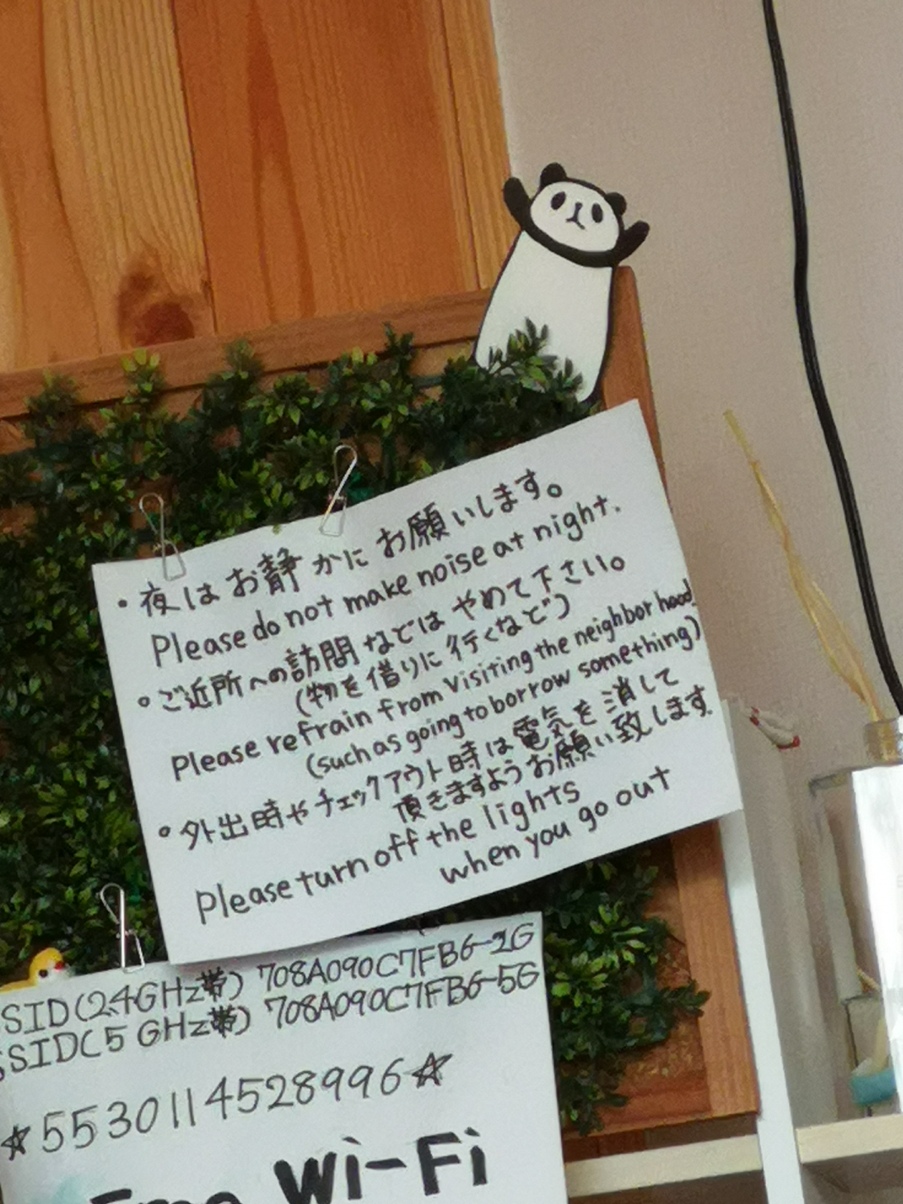 ・夜はお静かにお願いします。
Please do not make noise at night.
・ご近所への訪問などはやめて下さい。
(物を借りに行くなど)
Please refrain from visiting the neighborhood
(such as going to borrow something)
・外出時やチェックアウト時は電気を消して
頂きますようお願い致します.
Please turn off the lights
when you go out
SSID(2.4GHz帯) 708A090C7FB6-2G
SSID(5GHz帯) 708A090C7FB6-5G
☆5530114528996☆
Free Wi-Fi